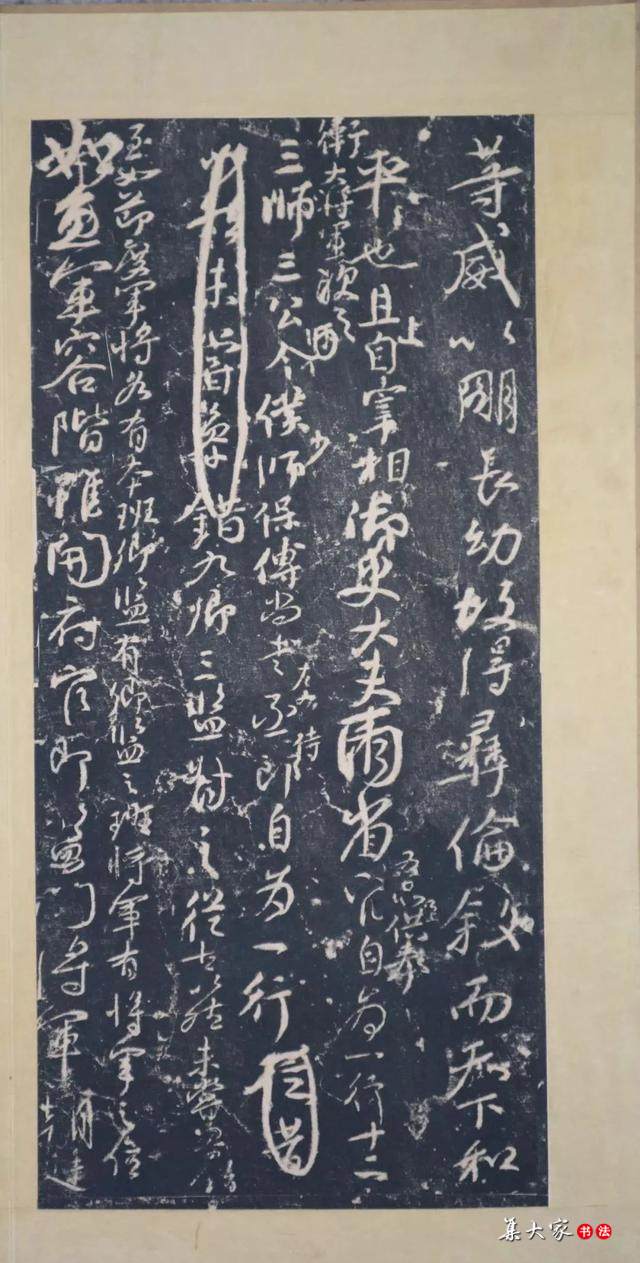 等威以明長幼故得彝倫敘而天下和
平也且上自宰相御史大夫兩省五品以上供奉官自為一行十二
衛大將軍次之
三師三公令僕少師保傅尚書左右丞侍郎自為一行
錯九卿三監對之從古以然未嘗參錯
至如節度軍將各有本班卿監有卿監之班將軍有將軍之位
如魚軍容階雖開府官即監門將軍朝廷
集大家书法